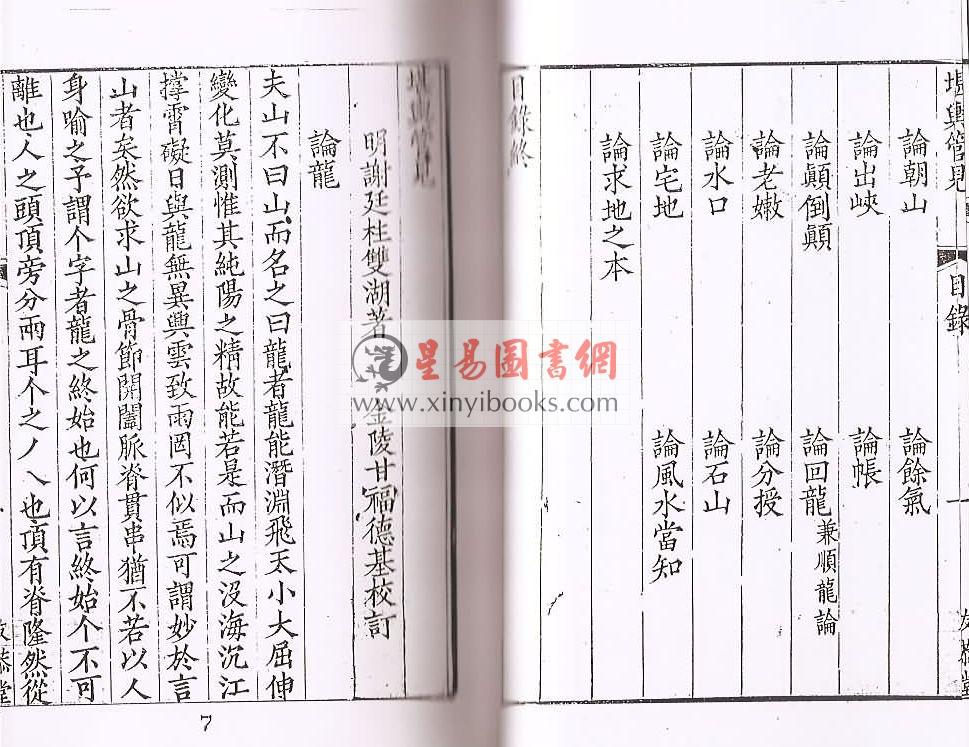 堪輿管見 目錄 一
論朝山 論餘氣
論出峽 論帳
論顛倒顛 論回龍兼順龍論
論老嫩 論分授
論水口 論石山
論宅地 論風水當知
論求地之本
目錄終
堪輿管見
明謝廷柱雙湖著 金陵甘福德基校訂
論龍
夫山不曰山而名之曰龍者龍能潛淵飛天小大屈伸
變化莫測惟其純陽之精故能若是而山之沒海沉江
撐霄礙日與龍無異興雲致雨罔不似焉可謂妙於言
山者矣然欲求山之骨節開闔脈脊貫串猶不若以人
身喻之予謂个字者龍之終始也何以言終始个不可
離也人之頭頂旁分兩耳个之丿乀也頂有脊隆然從
7
星易圖書網
www.xinyibooks.com